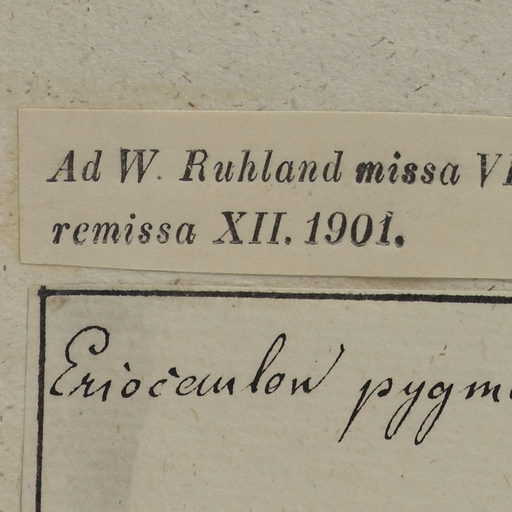 Ad W. Ruhland missa VI
remissa XII. 1901.
Eriocaulon pygm